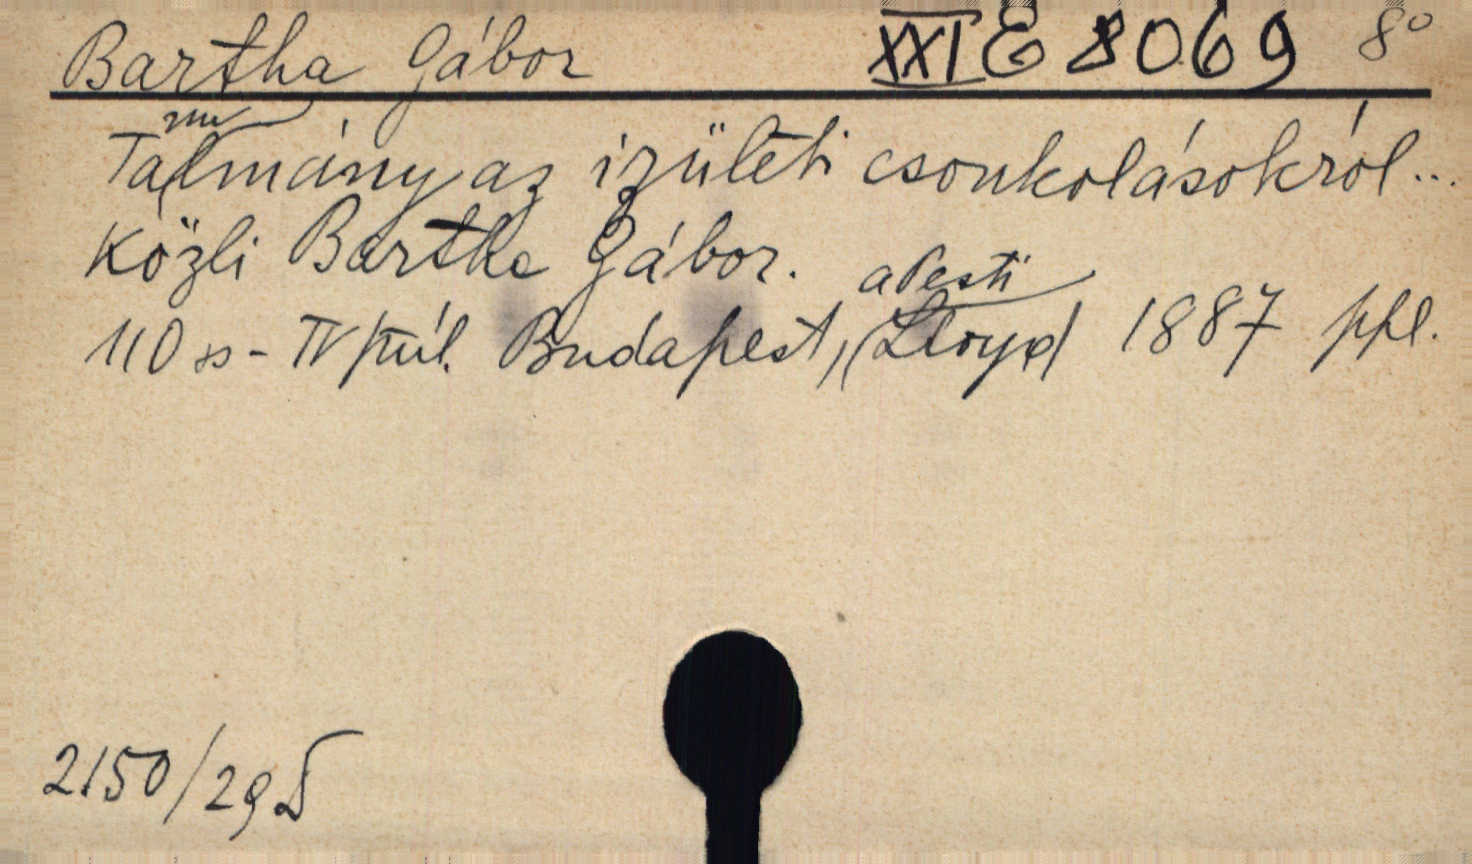 Bartha Gábor XXI E 8069 8°
Tanulmány az izületi csonkolásokról...
Közli Bartha Gábor.
110 ss - IV kül. Budapest, (a Pesti Lloyd) 1887 ppl.
2150/29